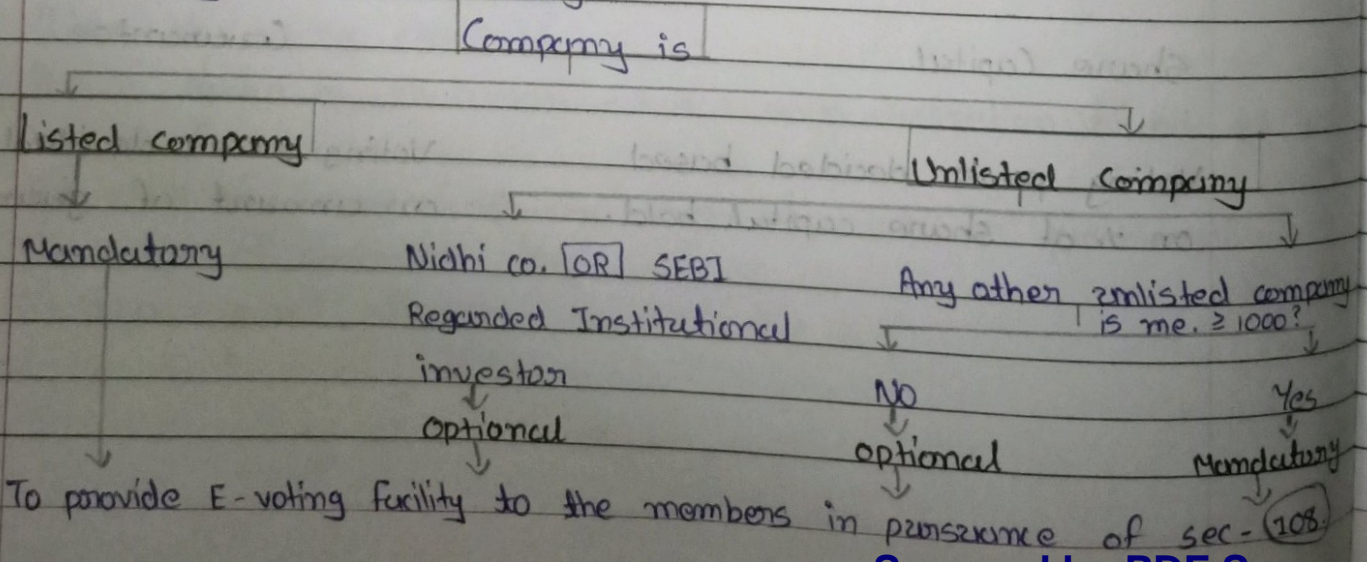 Company is
Listed company
Unlisted Company
Mandatory
Nidhi co. OR SEBI
Regarded Institutional
investor
Optional
Any other unlisted company
is me. ≥ 1000?
NO
Yes
optional
Mandatory
To provide E-voting facility to the members in pursuance of sec-108.